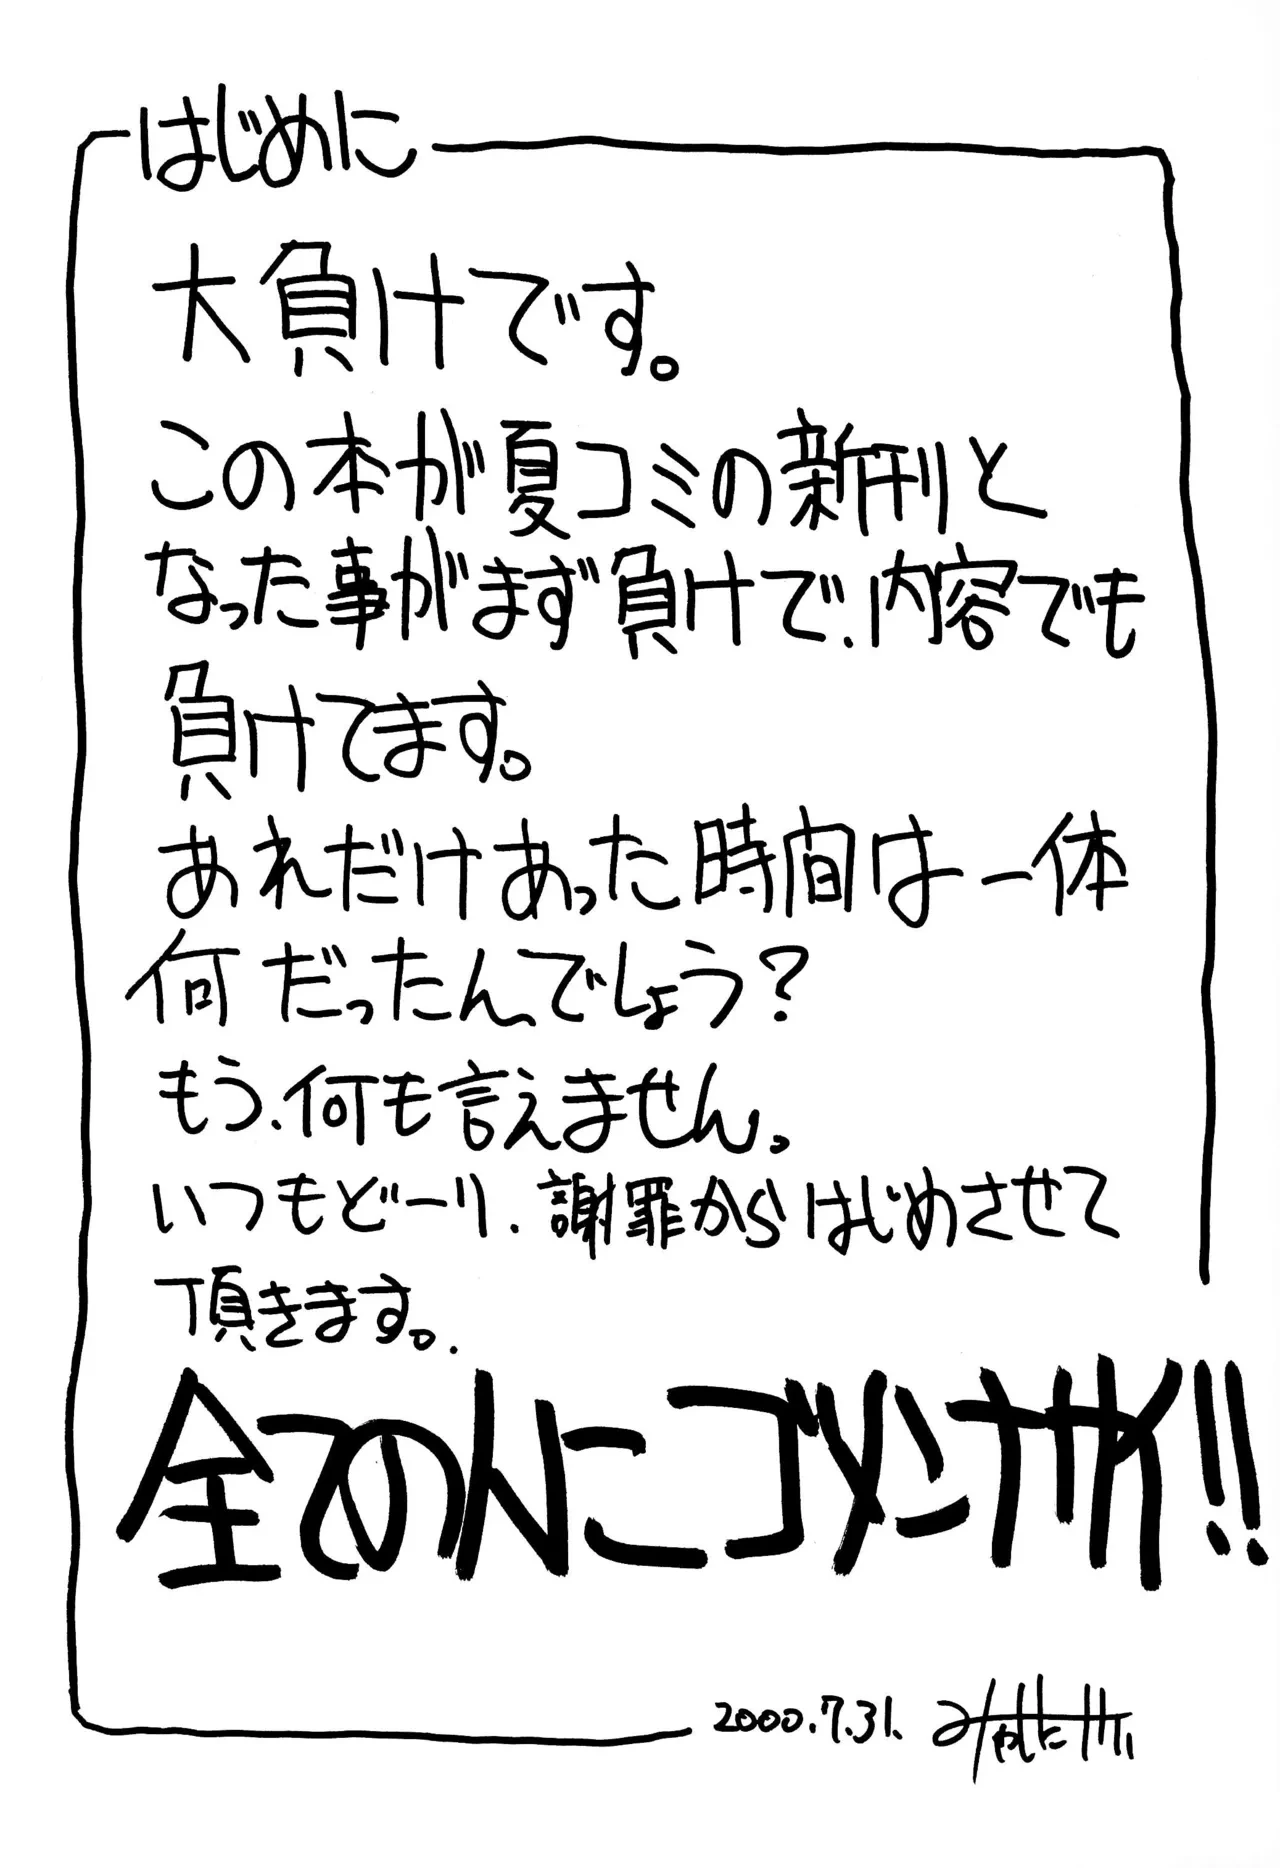 はじめに
大負けです。
この本が夏コミの新刊と
なった事がまず負けで、内容でも
負けてます。
あれだけあった時間は一体
何だったんでしょう？
もう、何も言えません。
いつもどーり、謝罪からはじめさせて
頂きます。.
全ての人にゴメンナサイ!!
2000.7.31.